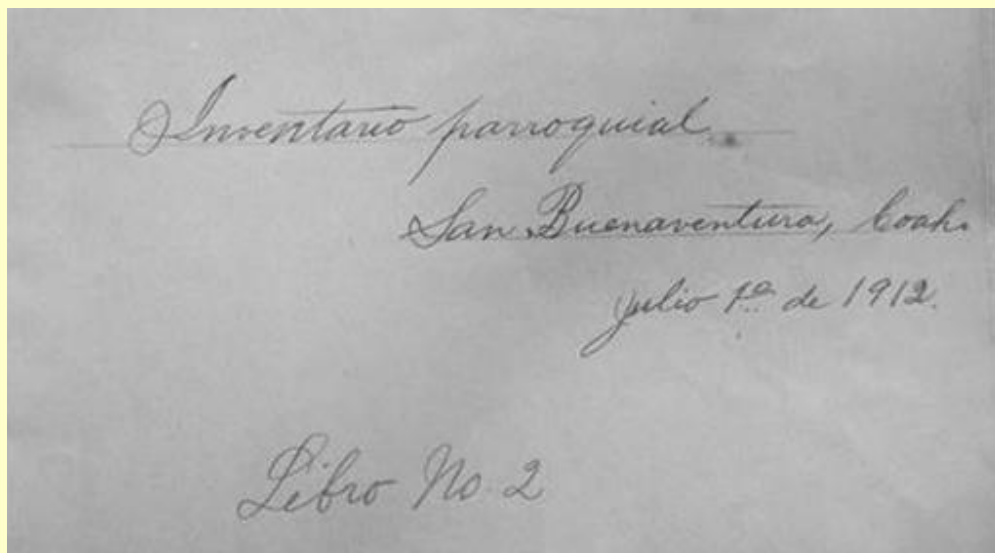 Inventario parroquial
San Buenaventura, Coah.
julio 1º de 1912.
Libro No 2